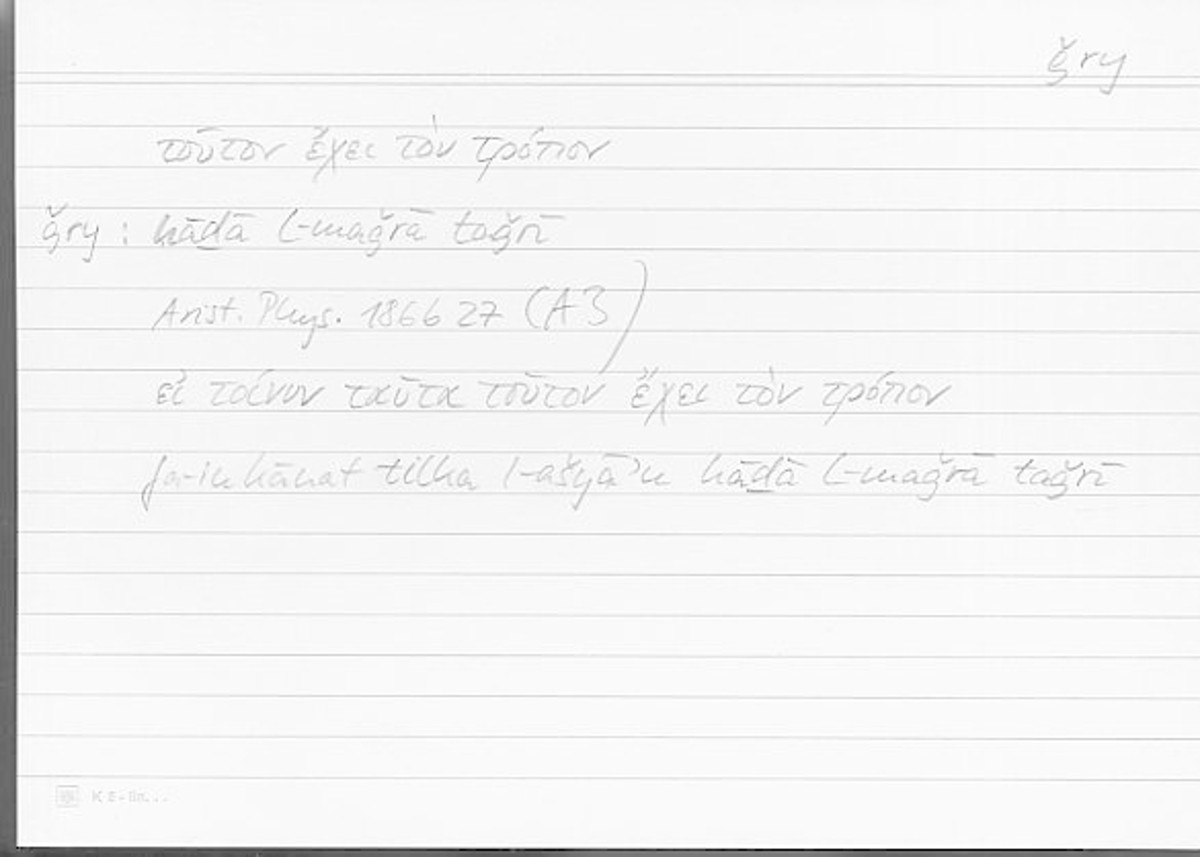 ǧry
τοῦτον ἔχει τὸν τρόπον
ǧry : hāḏā l-maǧrā taǧrī
Arist. Phys. 186b27 (A3)
εἰ τοίνυν ταῦτα τοῦτον ἔχει τὸν τρόπον
fa-in kānat tilka l-ašyāʾu hāḏā l-maǧrā taǧrī